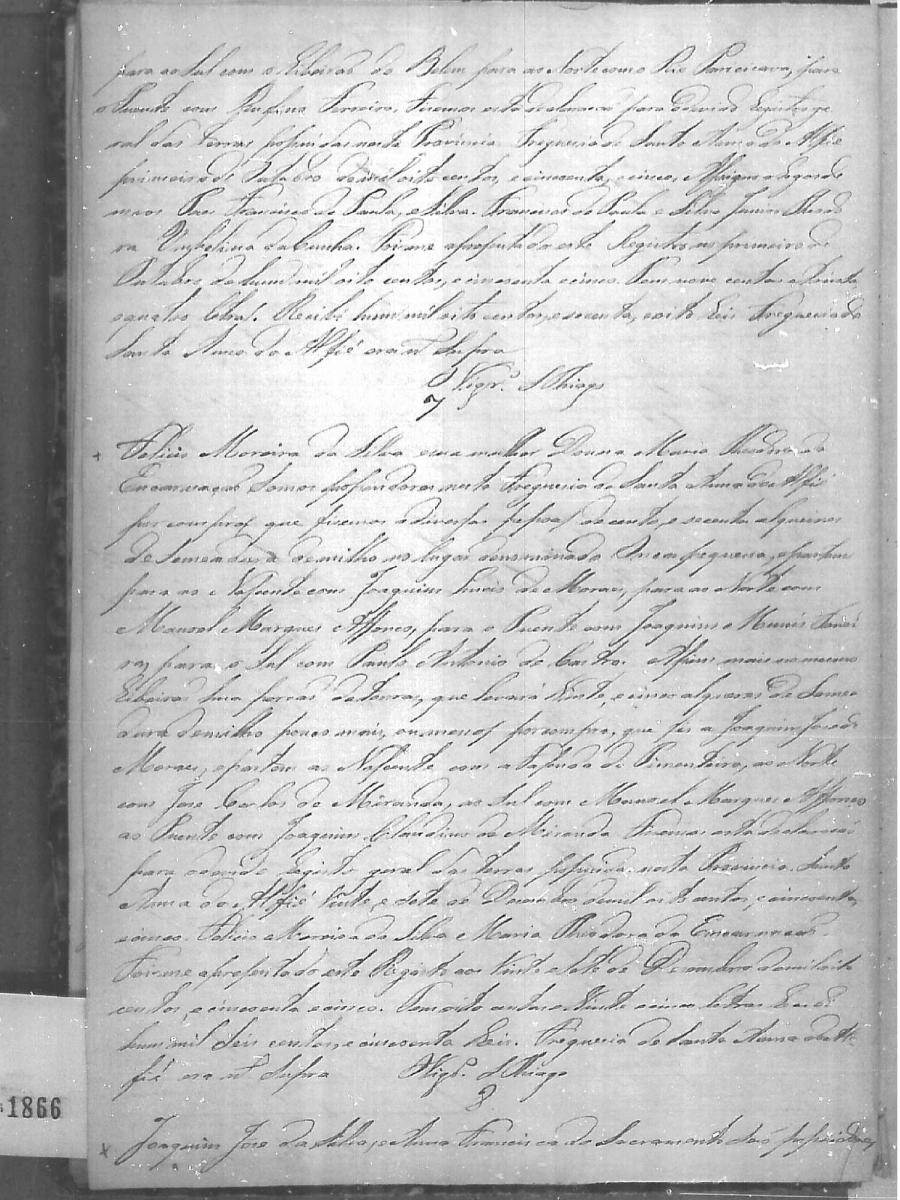 para ao Sul com o Ribeirão do Belem para ao Norte com o Rio Piracicava, para
o Puente com Rufino Ferreira. Fazemos esta declaração para o devido Registo ge
ral das terras possuidas nesta Provincia. Freguesia de Santa Anna do Alfié
primeiro de Outubro de mil oito centos, e cincoenta, e cinco. Assigno a rogo de
meos Paes Francisco de Paula, e Silva. Francisco de Paula e Silva Junior
Umbelina da Cunha. Foi-me apresentado este Registro aos primeiro de
Outubro de hum mil oito centos, e cincoenta e cinco. Tem nove centos e trinta
e quatro letras. Recebi hum mil oito centos, e secenta, e oito Reis Freguesia de
Santa Anna do Alfié era ut Supra
O Vigr.º SThiago
7
Felicio Moreira da Silva e sua mulher Donna Maria Theodora da
Encarnação Somos possuidores nesta Freguesia de Santa Anna do Alfié
por compras que fizemos a diversas pessoas de cento, e secenta alqueires
de Semeadura de milho no lugar denominado Onca pequena, e partem
para ao Nascente com Joaquim Luiz de Moraes, para ao Norte com
Manoel Marques Affonço, para o Puente com Joaquim Munis Tava
res, para o Sul com Paulo Antonio de Castro. Assim mais no mesmo
Ribeirão hua porção de terras, que levará Vinte, e cinco alqueres de Semea
dura de milho pouco mais, ou menos por compra, que fis a Joaquim José de
Moraes, e partem ao Nascente com a Fasenda de Pimenteira, ao Norte
com Jose Carlos de Miranda, ao Sul com Manoel Marques Affonço
ao Puente com Joaquim Claudino de Miranda Fazemos esta declaração
para o devido Registo geral das terras possuidas nesta Provincia. Santa
Anna do Alfié Vinte, e sete de Dezembro de mil oito centos, e cincoenta,
e cinco. Felicio Moreira da Silva Maria Theodora da Encarnação.
Foi-me apresentado este Registo aos Vinte e sete de Dezembro de mil oito
centos, e cincoenta e cinco. Tem oito centos e Vinte e cinco letras Recebi
hum mil seis centos, e cincoenta Reis. Freguesia de Santa Anna do Al-
fié era ut Supra Vigr.º SThiago
8
Joaquim Jose da Silva, e Anna Francisca do Sacramento São possuidores,
1866